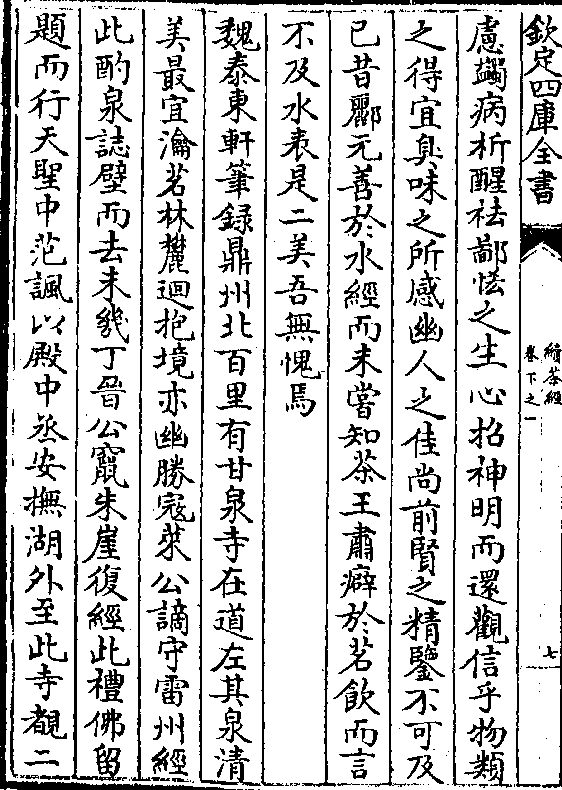 欽定四庫全書
續茶經
卷下之一
七
慮蠲病析醒祛鄙恡之生心招神明而還觀信乎物類
之得宜臭味之所感幽人之佳尚前賢之精鑒不可及
已昔酈元善於水經而未嘗知茶王肅癖於茗飲而言
不及水表是二美吾無愧焉
魏泰東軒筆録鼎州北百里有甘泉寺在道左其泉清
美最宜瀹茗林麓迴抱境亦幽勝寇萊公謫守雷州經
此酌泉誌壁而去未幾丁晉公竄朱崖復經此禮佛留
題而行天聖中范諷以殿中丞安撫湖外至此寺覩二